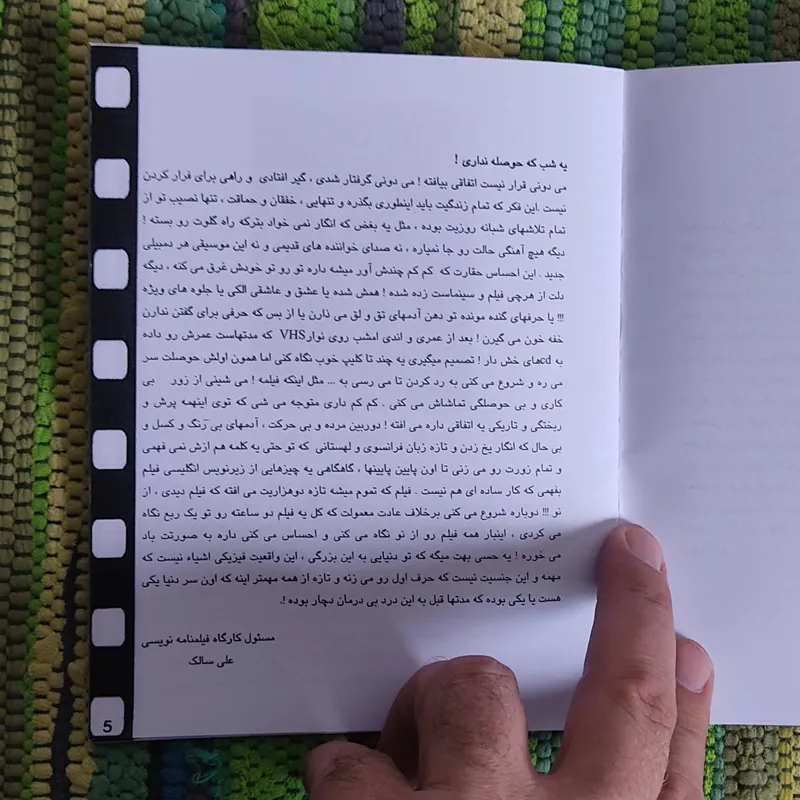 یه شب که حوصله نداری !
می دونی قرار نیست اتفاقی بیافته ! می دونی گرفتار شدی ، گیر افتادی و راهی برای فرار کردن
نیست .این فکر که تمام زندگیت باید اینطوری بگذره و تنهایی ، خفقان و حماقت ، تنها نصیب تو از
تمام تلاشهای شبانه روزیت بوده ، مثل یه بغض که انگار نمی خواد بترکه راه گلوت رو بسته !
دیگه هیچ آهنگی حالت رو جا نمیاره ، نه صدای خواننده های قدیمی و نه این موسیقی هر دمبیلی
جدید . این احساس حقارت که کم کم چندش آور میشه داره تو رو تو خودش غرق می کنه ، دیگه
دلت از هرچی فیلم و سینماست زده شده ! همش شده یا عشق و عاشقی الکی یا جلوه های ویژه
!!! یا حرفهای گنده مونده تو دهن آدمهای تق و لق می ذارن یا از بس که حرفی برای گفتن ندارن
خفه خون می گیرن ! بعد از عمری و اندی امشب روی نوارVHS که مدتهاست عمرش رو داده
به cdهای خش دار ! تصمیم میگیری یه چند تا کلیپ خوب نگاه کنی اما همون اولش حوصلت سر
می ره و شروع می کنی به رد کردن تا می رسی به ... مثل اینکه فیلمه ! می شینی از زور بی
کاری و بی حوصلگی تماشاش می کنی . کم کم داری متوجه می شی که توی اینهمه پرش و
ریختگی و تاریکی یه اتفاقی داره می افته ! دوربین مرده و بی حرکت ، آدمهای بی رنگ و کسل و
بی حال که انگار یخ زدن و تازه زبان فرانسوی و لهستانی که تو حتی یه کلمه هم ازش نمی فهمی
و تمام زورت رو می زنی تا اون پایین پایینها ، گاهگاهی یه چیزهایی از زیرنویس انگلیسی فیلم
بفهمی که کار ساده ای هم نیست . فیلم که تموم میشه تازه دوهزاریت می افته که فیلم دیدی ، از
نو !!! دوباره شروع می کنی برخلاف عادت معمولت که کل یه فیلم دو ساعته رو تو یک ربع نگاه
می کردی ، اینبار همه فیلم رو از نو نگاه می کنی و احساس می کنی داره به صورتت باد
می خوره ! یه حسی بهت میگه که تو دنیایی به این بزرگی ، این واقعیت فیزیکی اشیاء نیست که
مهمه و این جنسیت نیست که حرف اول رو می زنه و تازه از همه مهمتر اینه که اون سر دنیا یکی
هست یا یکی بوده که مدتها قبل به این درد بی درمان دچار بوده !.
مسئول کارگاه فیلمنامه نویسی
علی سالک
5